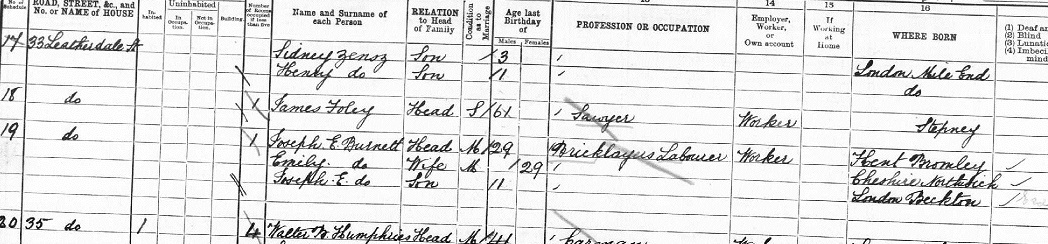 No. of Schedule ROAD, STREET, &c., and No. or NAME of HOUSE In-habited Uninhabited In Occupation. Not in Occupation. Building Number of Rooms occupied if less than five Name and Surname of each Person RELATION to Head of Family Condition as to Marriage Age last Birthday of Males Females PROFESSION OR OCCUPATION Employer, Worker, or Own account If Working at Home WHERE BORN
15 16
(1) Deaf and
(2) Blind
(3) Lunatic
(4) Imbecile
mind
17 33 Leatherdale St Sidney Zenoz Son 3 London Mile End
Henry do Son 1 do
18 do 1 James Foley Head S 61 Sawyer Worker Stepney
19 do 1 Joseph E Burnett Head M 29 Bricklayers Labourer Worker Kent Bromley
Emily do Wife M 29 Cheshire Northwich
Joseph E. do Son 1 London Beckton
20 35 do 1 4 Walter Humphries Head M 41 Carman